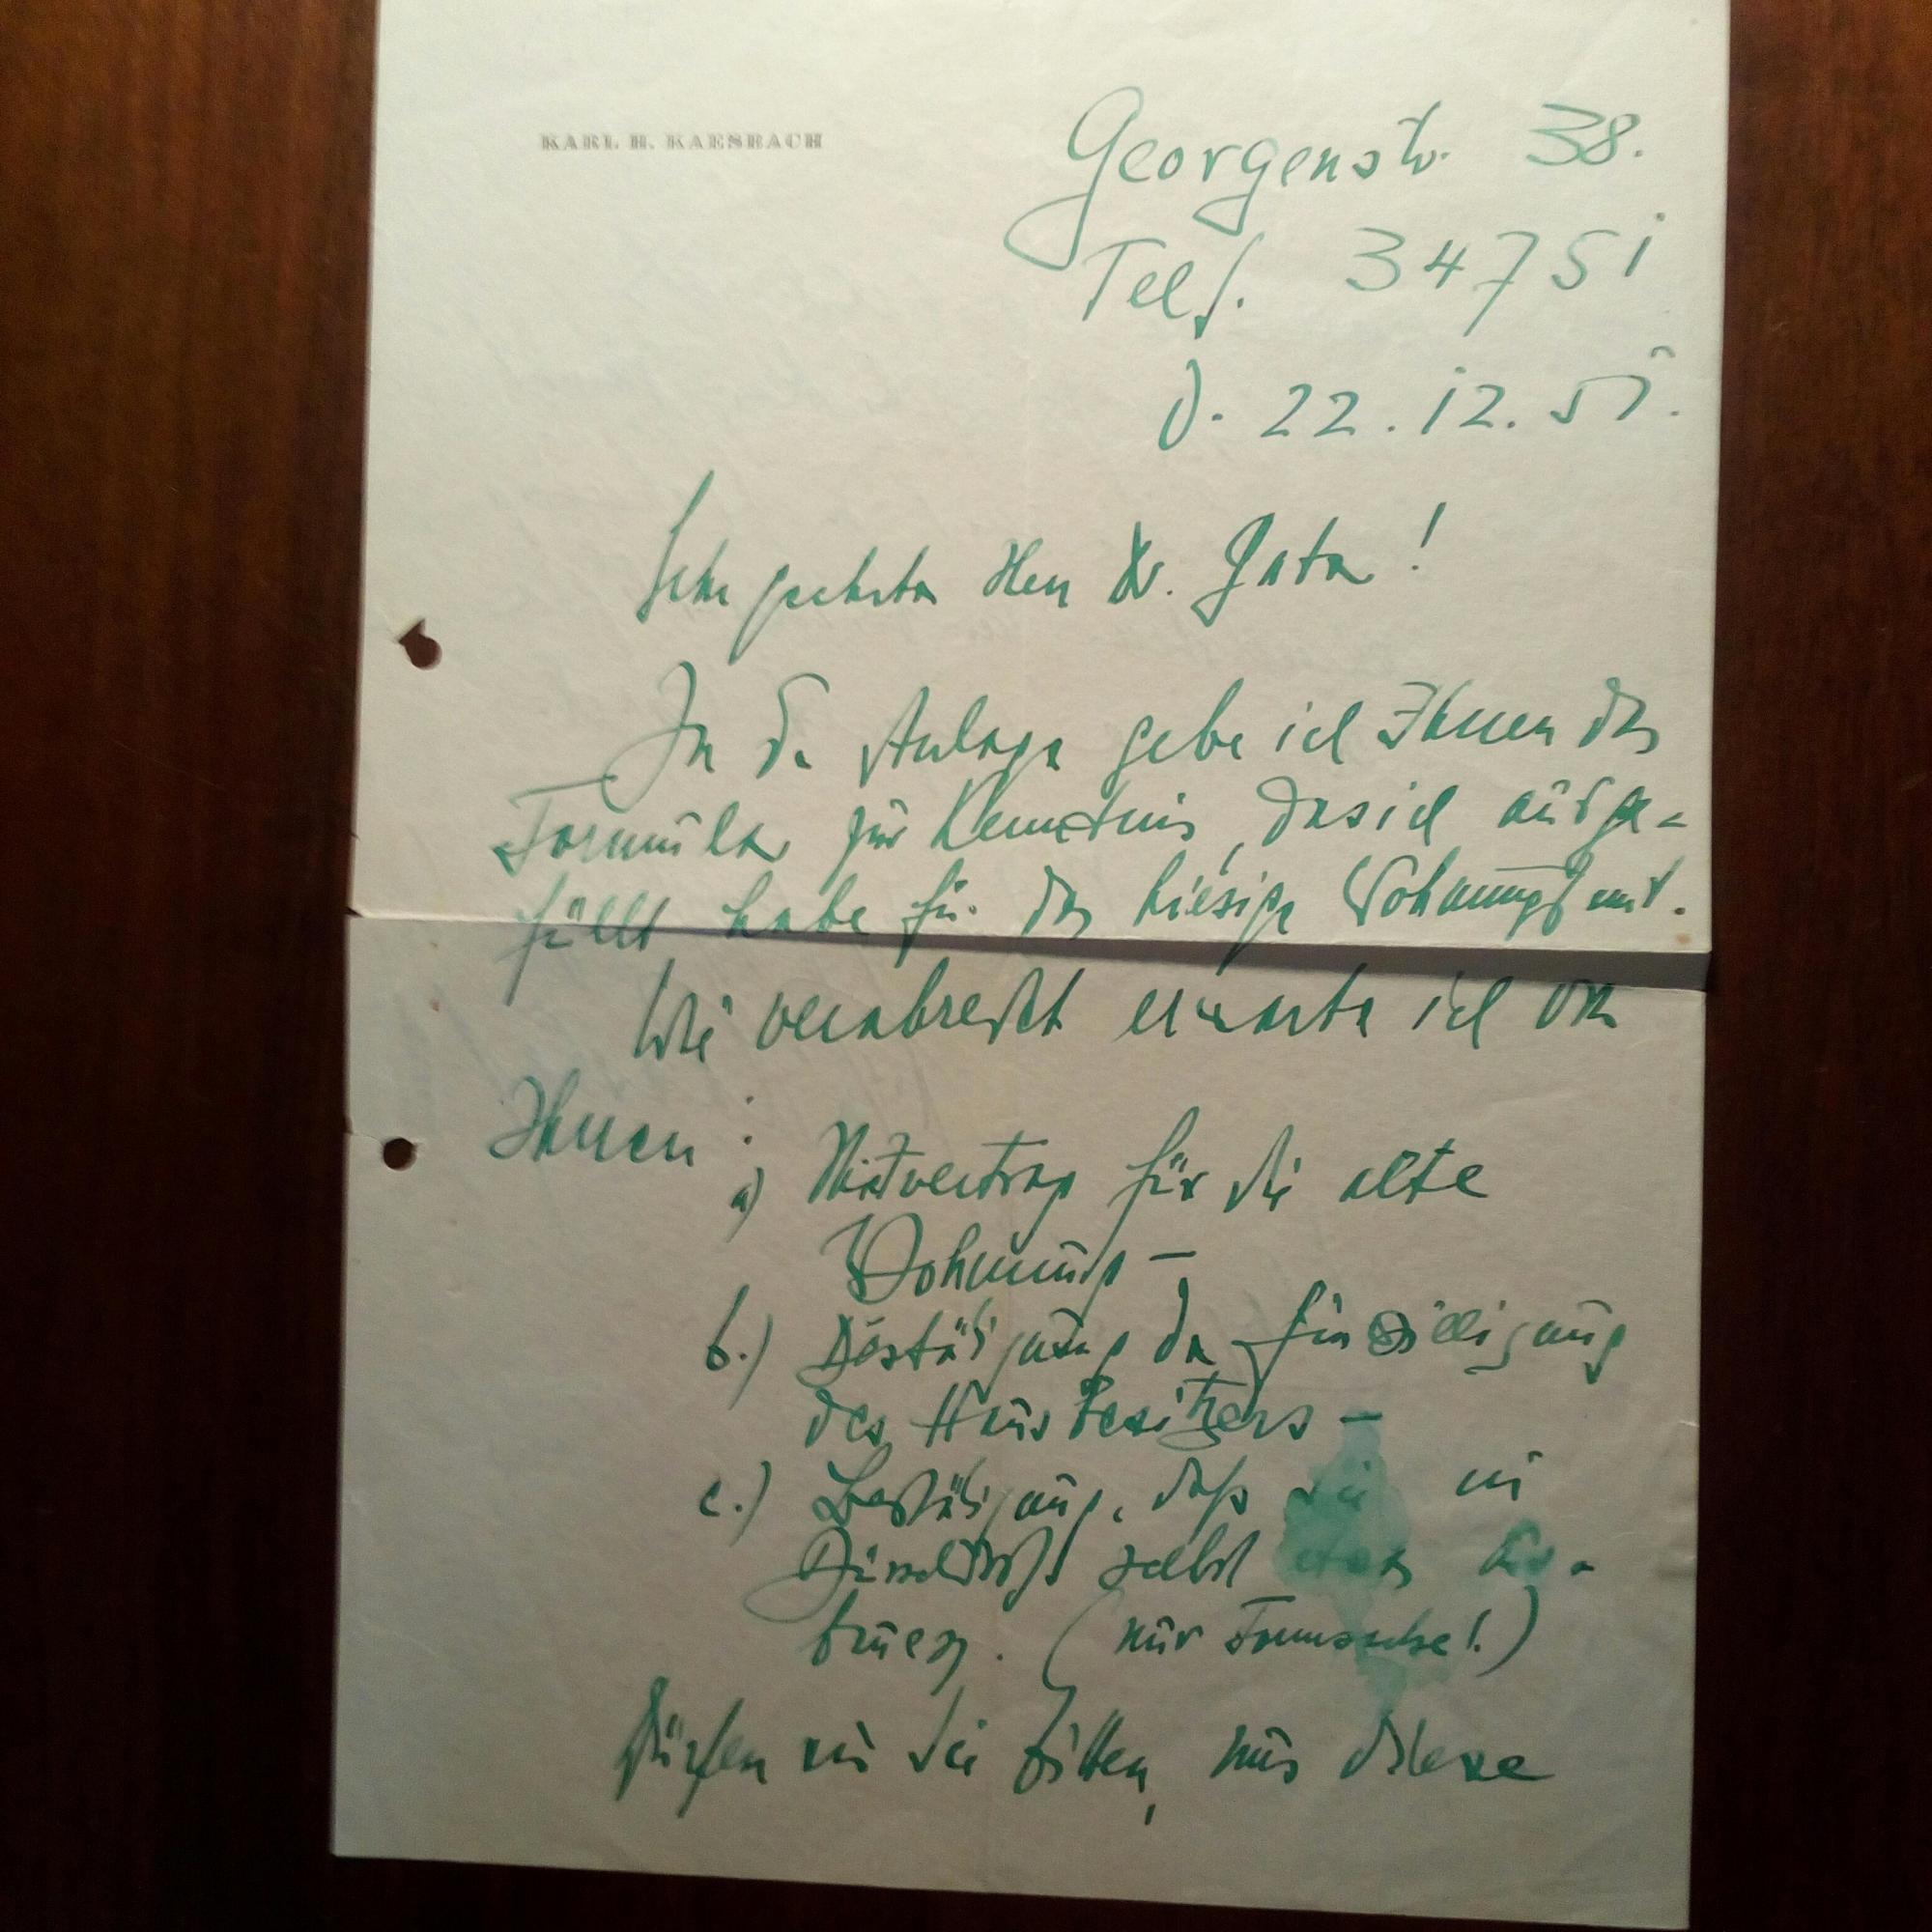 KARL H. KAESBACH
Georgenstr. 38.
Telf. 34751
d. 22.12.55.
Sehr geehrter Herr Dr. !
In der Anlage gebe ich Ihnen das
Formular zur Kenntnis, das ich ausge-
füllt habe für das hiesige Wohnungsamt.
Wie verabredet erwarte ich von
Ihnen :
a) Mietvertrag für die alte
Wohnung –
b.) Bestätigung der Einwilligung
des Hausbesitzers –
c.) Bestätigung, daß Sie in
Düsseldorf selbst
. (nur Formsache!)
Dürfen wir Sie bitten, uns diese